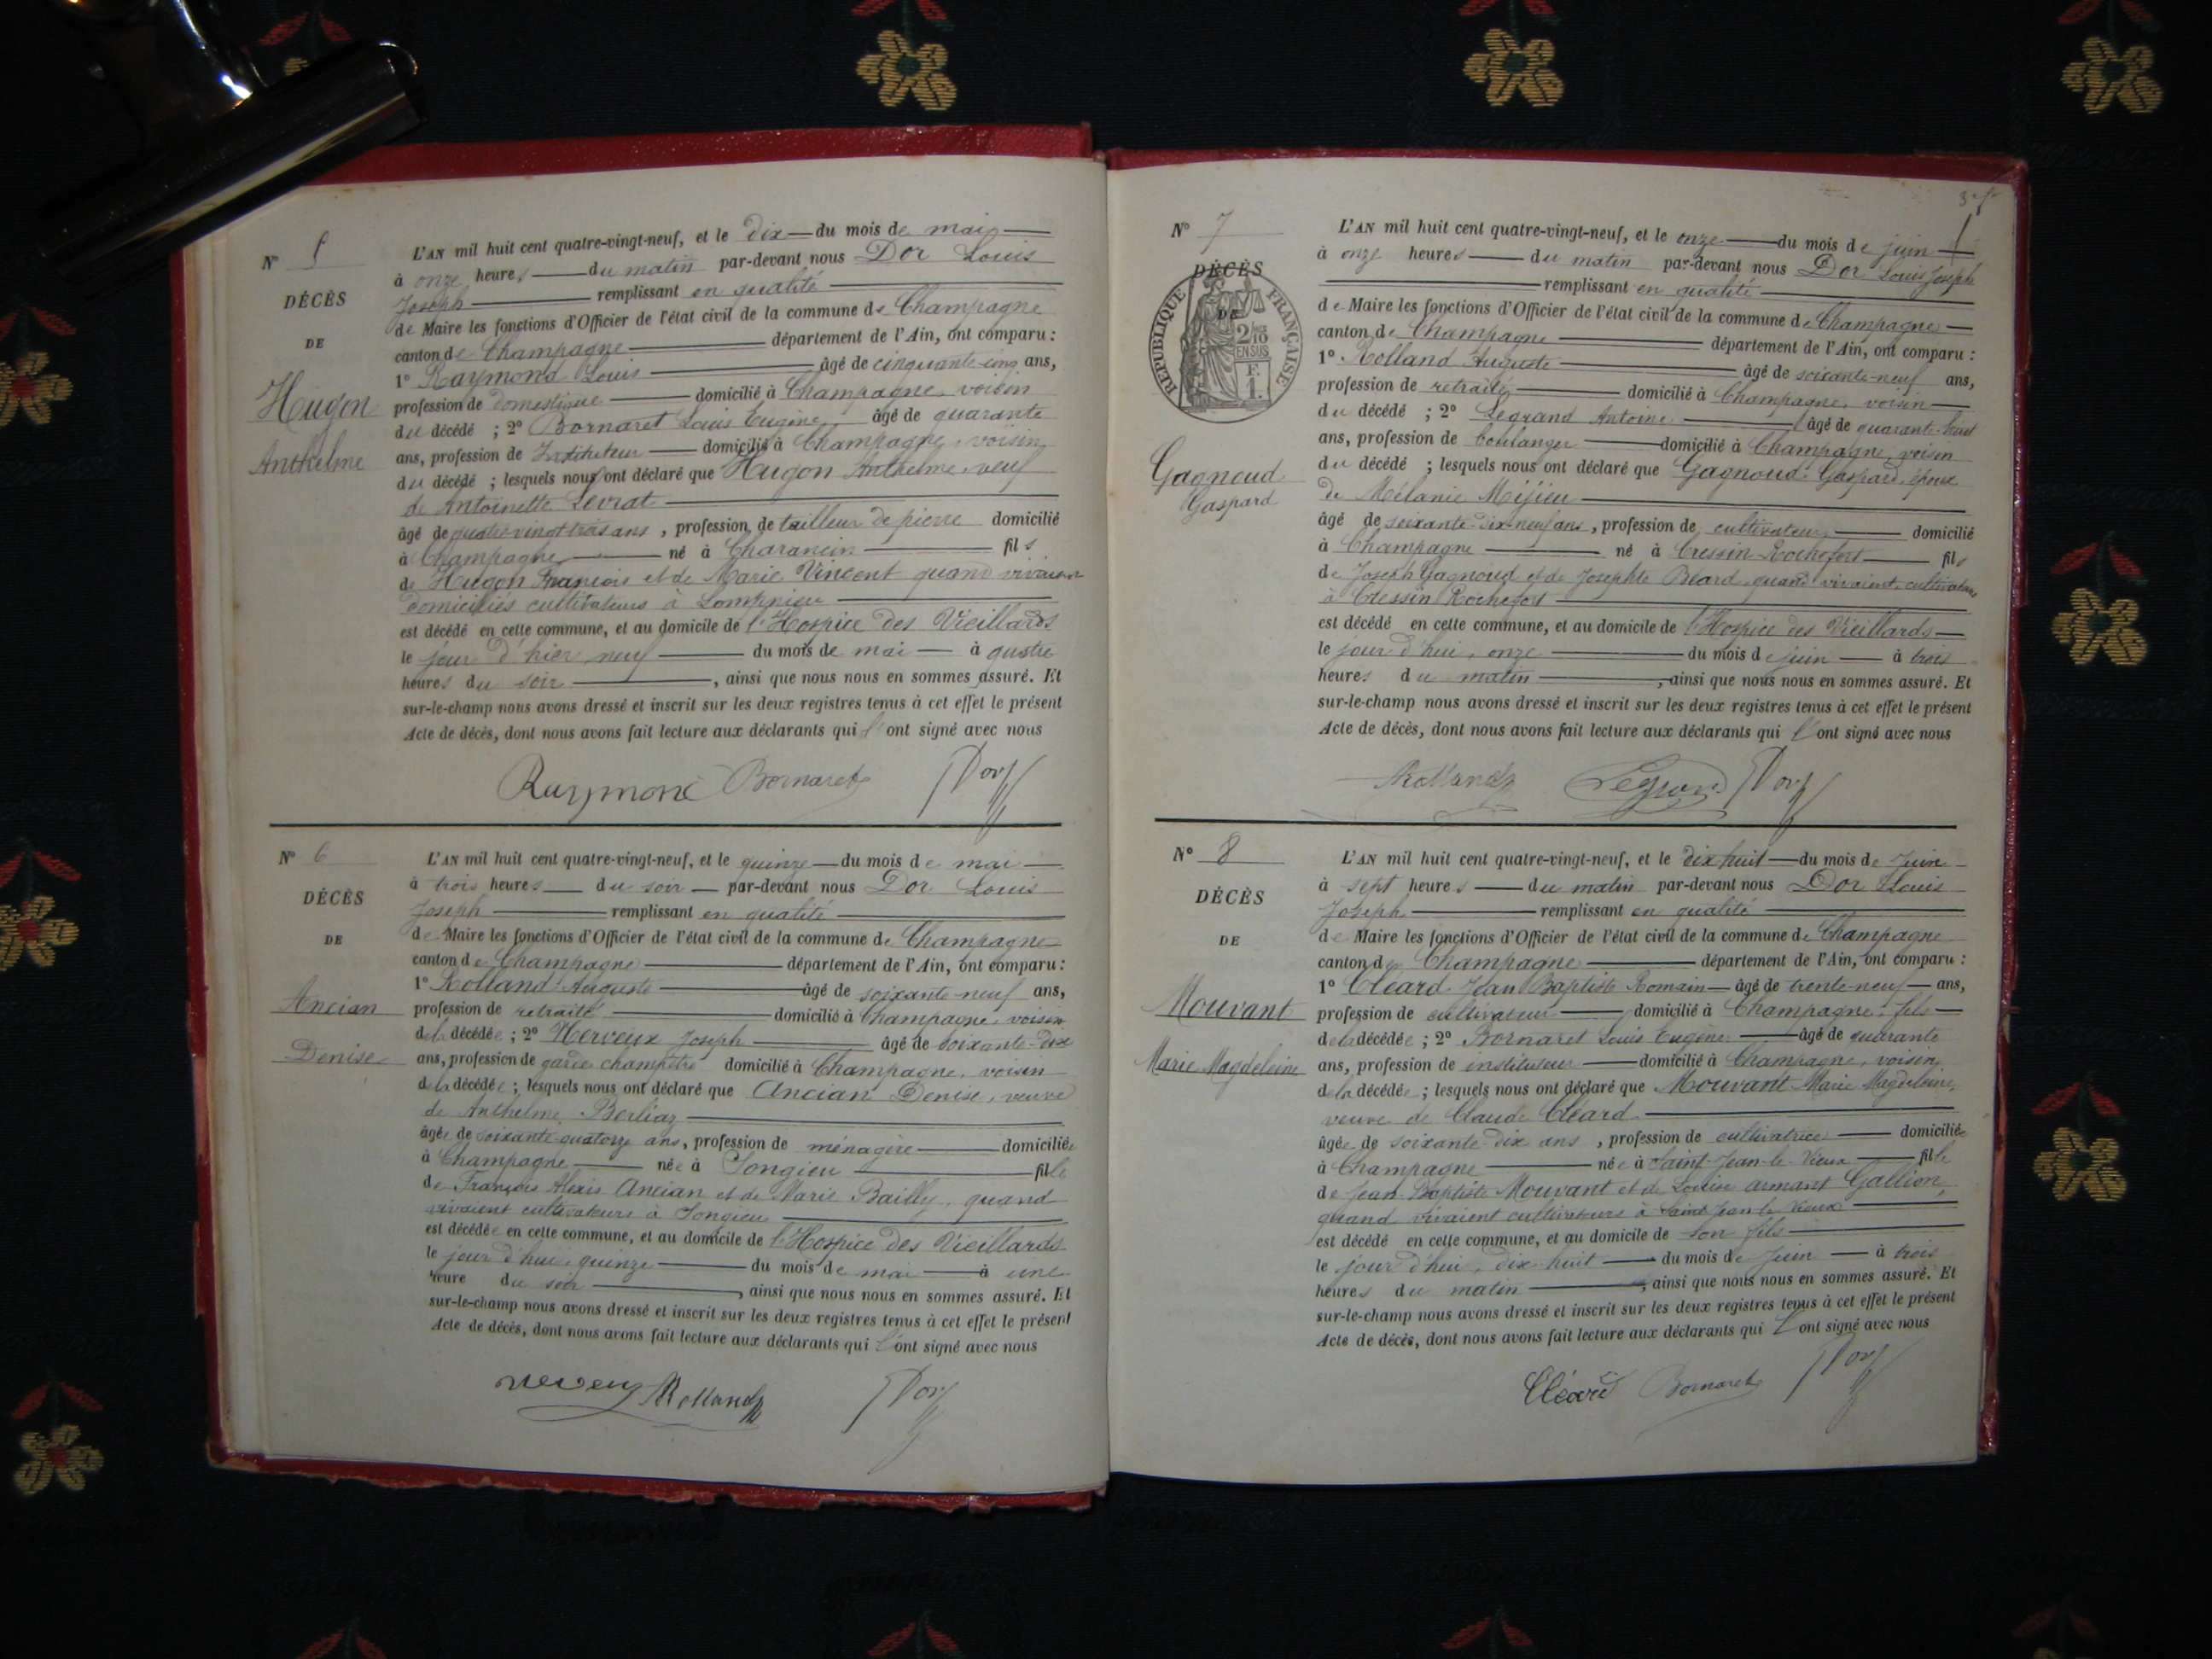 N° 5
DÉCÈS
DE
Hugon
Anthelme
L'AN mil huit cent quatre-vingt-neuf, et le dix du mois de mai
à onze heures du matin par-devant nous Dor Louis
Joseph remplissant en qualité
de Maire les fonctions d'Officier de l'état civil de la commune de Champagne
canton de Champagne département de l'Ain, ont comparu :
1° Raymond Louis âgé de cinquante-cinq ans,
profession de domestique domicilié à Champagne, voisin
du décédé ; 2° Bornaret Louis Eugène âgé de quarante
ans, profession de Instituteur domicilié à Champagne, voisin
du décédé ; lesquels nous ont déclaré que Hugon Anthelme, veuf
de Antoinette Levrat
âgé de quatre-vingt-trois ans, profession de tailleur de pierre domicilié
à Champagne né à Charancin fils
de Hugon François et de Marie Vincent quand vivaient
domiciliés cultivateurs à Lompnieu
est décédé en cette commune, et au domicile de l'Hospice des Vieillards
le jour d'hier, neuf du mois de mai à quatre
heures du soir, ainsi que nous nous en sommes assuré. Et
sur-le-champ nous avons dressé et inscrit sur les deux registres tenus à cet effet le présent
Acte de décès, dont nous avons fait lecture aux déclarants qui l'ont signé avec nous
Raymond Bornaret Dor
N° 6
DÉCÈS
DE
Ancian
Denise
L'AN mil huit cent quatre-vingt-neuf, et le quinze du mois de mai
à trois heures du soir par-devant nous Dor Louis
Joseph remplissant en qualité
de Maire les fonctions d'Officier de l'état civil de la commune de Champagne
canton de Champagne département de l'Ain, ont comparu :
1° Rolland Auguste âgé de soixante-neuf ans,
profession de retraité domicilié à Champagne, voisin
de la décédée ; 2° Herveux Joseph âgé de soixante-dix
ans, profession de garde champêtre domicilié à Champagne, voisin
de la décédée ; lesquels nous ont déclaré que Ancian Denise, veuve
de Anthelme Berliaz
âgée de soixante-quatorze ans, profession de ménagère domiciliée
à Champagne née à Songieu fille
de François Alexis Ancian et de Marie Bailly, quand
vivaient cultivateurs à Songieu
est décédée en cette commune, et au domicile de l'Hospice des Vieillards
le jour d'hui, quinze du mois de mai à une
heure du soir, ainsi que nous nous en sommes assuré. Et
sur-le-champ nous avons dressé et inscrit sur les deux registres tenus à cet effet le présent
Acte de décès, dont nous avons fait lecture aux déclarants qui l'ont signé avec nous
Rolland Dor
N° 7
DÉCÈS
DE
REPUBLIQUE FRANÇAISE
2/10 EN SUS
F. 1.
Gagnoud
Gaspard
L'AN mil huit cent quatre-vingt-neuf, et le onze du mois de juin
à onze heures du matin par-devant nous Dor Louis Joseph
remplissant en qualité
de Maire les fonctions d'Officier de l'état civil de la commune de Champagne
canton de Champagne département de l'Ain, ont comparu :
1° Rolland Auguste âgé de soixante-neuf ans,
profession de retraité domicilié à Champagne, voisin
du décédé ; 2° Legrand Antoine âgé de quarante-huit
ans, profession de boulanger domicilié à Champagne, voisin
du décédé ; lesquels nous ont déclaré que Gagnoud Gaspard, époux
de Mélanie Mijieu
âgé de soixante-dix-neuf ans, profession de cultivateur domicilié
à Champagne né à Cressin Rochefort fils
de Joseph Gagnoud et de Josephte Béard quand vivaient cultivateurs
à Cressin Rochefort
est décédé en cette commune, et au domicile de l'Hospice des Vieillards
le jour d'hui, onze du mois de juin à trois
heures du matin, ainsi que nous nous en sommes assuré. Et
sur-le-champ nous avons dressé et inscrit sur les deux registres tenus à cet effet le présent
Acte de décès, dont nous avons fait lecture aux déclarants qui l'ont signé avec nous
Rolland Legrand Dor
N° 8
DÉCÈS
DE
Mouvant
Marie Magdeleine
L'AN mil huit cent quatre-vingt-neuf, et le dix huit du mois de Juin
à sept heures du matin par-devant nous Dor Louis
Joseph remplissant en qualité
de Maire les fonctions d'Officier de l'état civil de la commune de Champagne
canton de Champagne département de l'Ain, ont comparu :
1° Cléard Jean Baptiste Romain âgé de trente-neuf ans,
profession de cultivateur domicilié à Champagne, fils
de la décédée ; 2° Bornaret Louis Eugène âgé de quarante
ans, profession de instituteur domicilié à Champagne, voisin
de la décédée ; lesquels nous ont déclaré que Mouvant Marie Magdeleine,
veuve de Claude Cléard
âgée de soixante-dix ans, profession de cultivatrice domiciliée
à Champagne née à Saint-Jean-le-Vieux fille
de Jean Baptiste Mouvant et de Louise armant Gallion,
quand vivaient cultivateurs à Saint Jean le Vieux
est décédé en cette commune, et au domicile de son fils
le jour d'hui, dix-huit du mois de Juin à trois
heures du matin, ainsi que nous nous en sommes assuré. Et
sur-le-champ nous avons dressé et inscrit sur les deux registres tenus à cet effet le présent
Acte de décès, dont nous avons fait lecture aux déclarants qui l'ont signé avec nous
Cléard Bornaret Dor